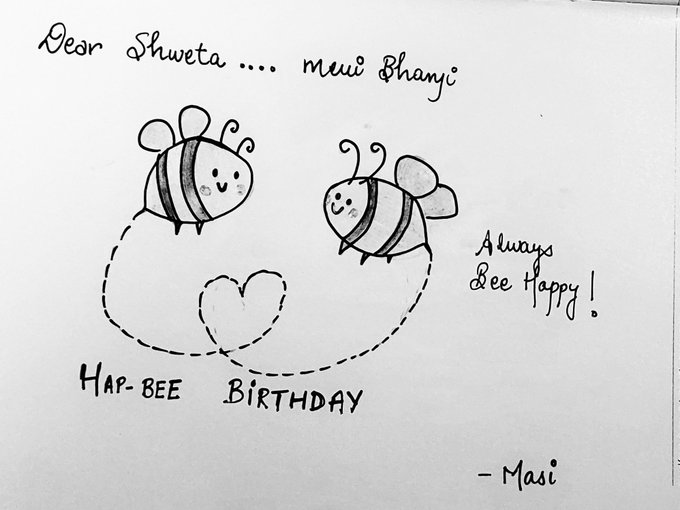 Dear Shweta .... meri Bhanji
Always
Bee Happy!
HAP-BEE BIRTHDAY
- Masi